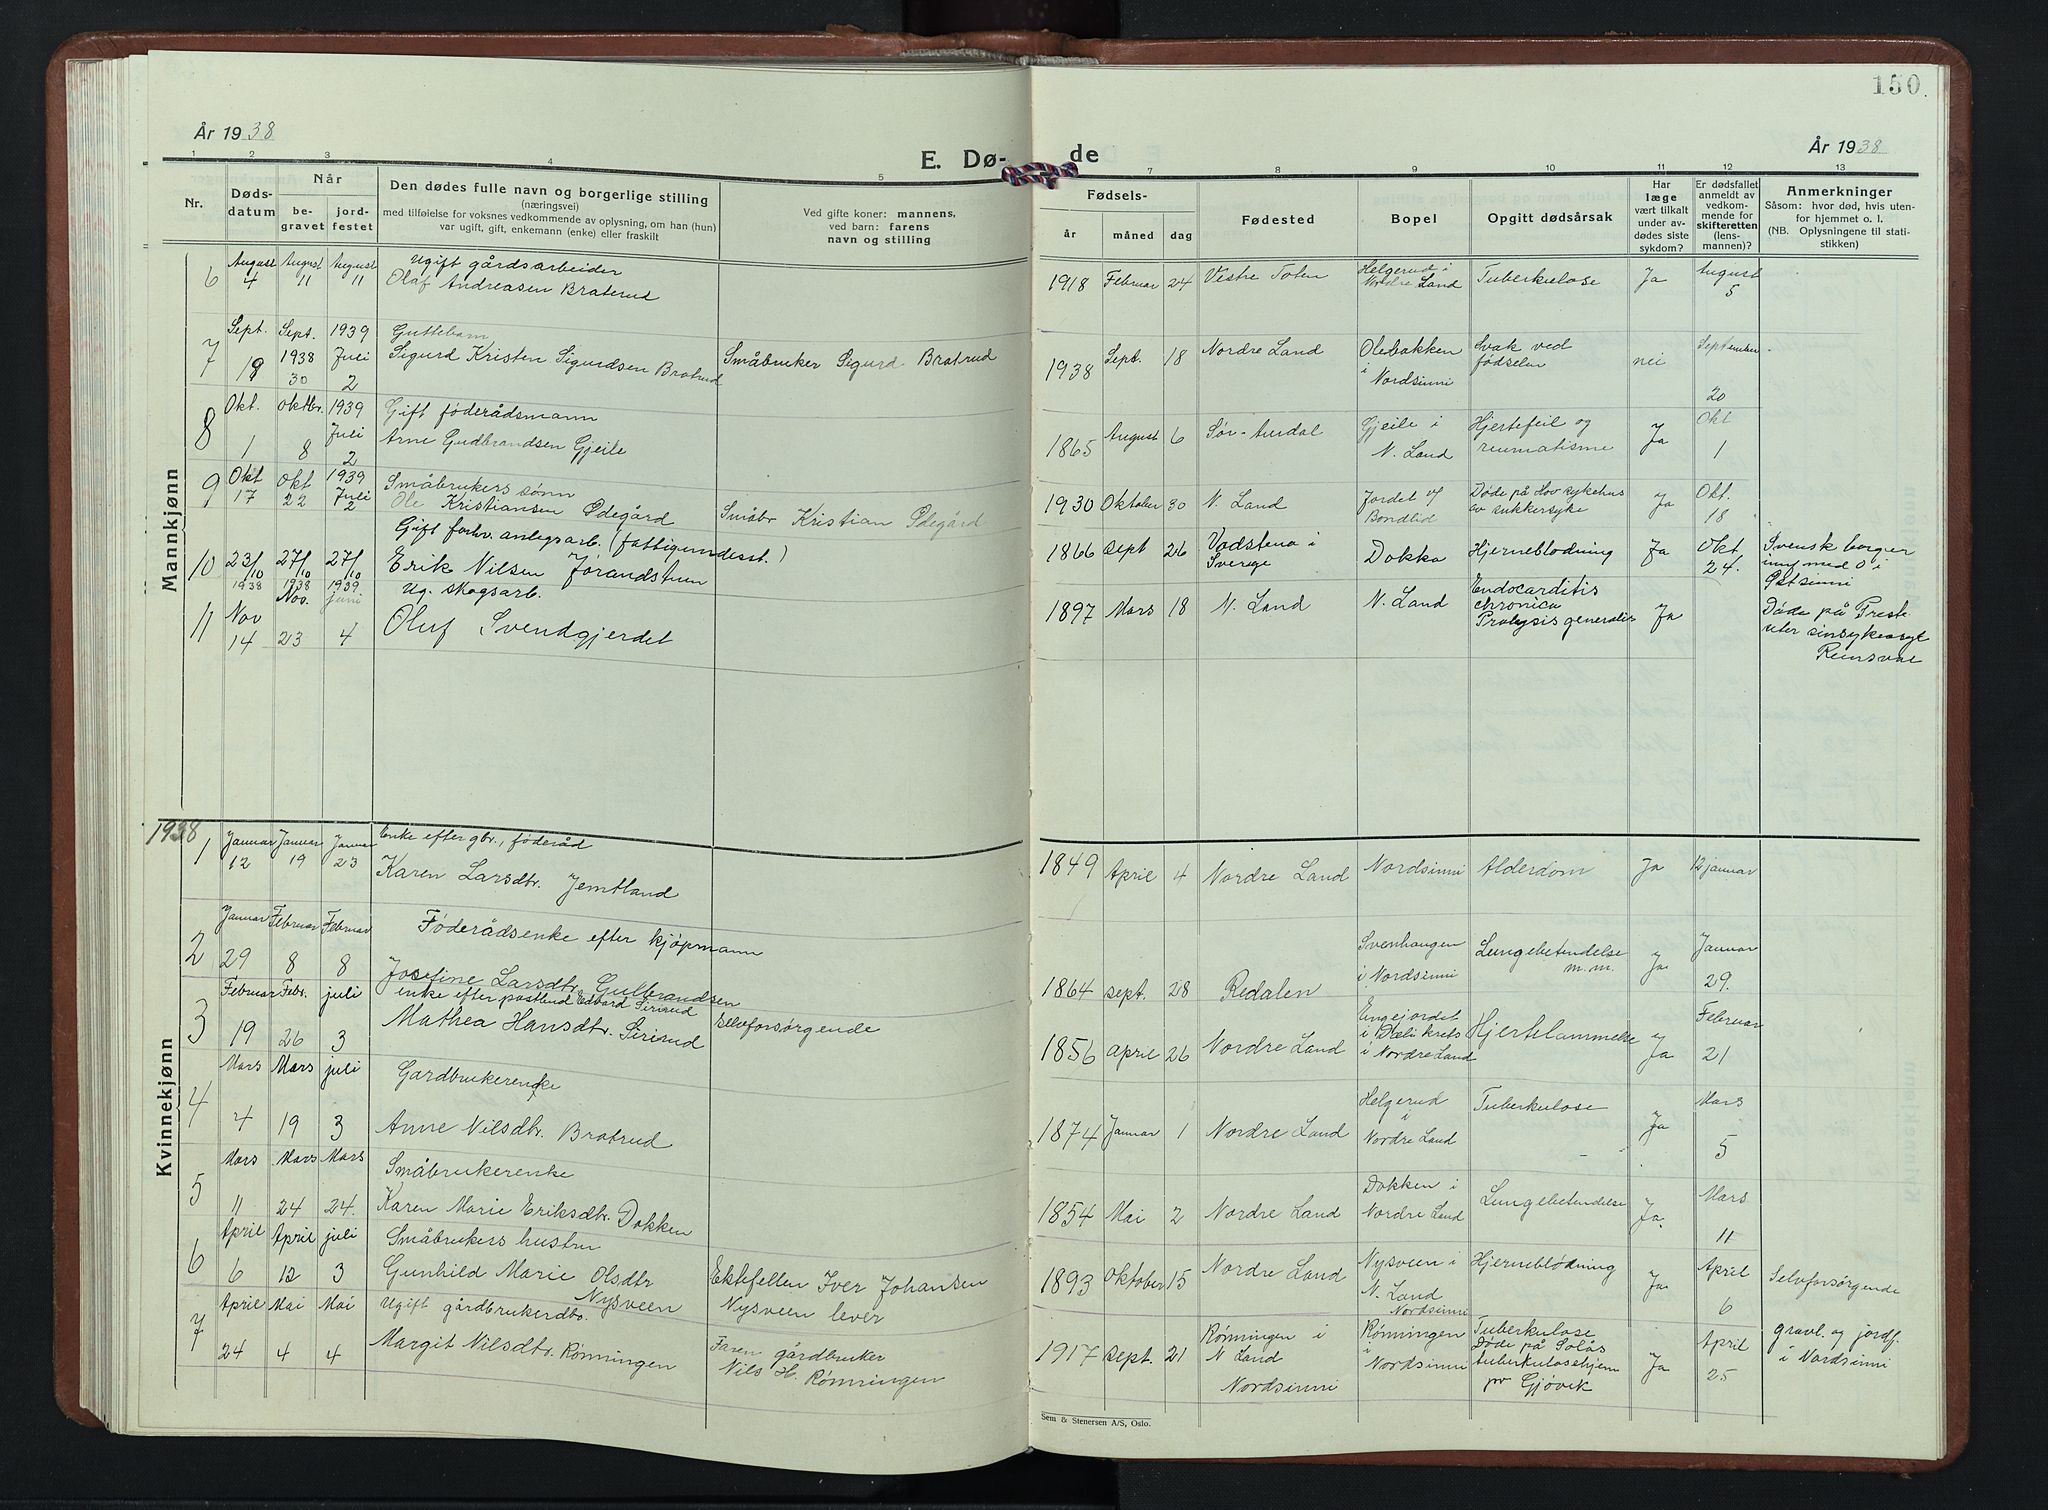 150
År 1938
År 1938
E. Dø-
de
1 2 3 4 5 7 8 9 10 11 12 13
Nr.
Døds-
datum
Når
be-
gravet
jord-
festet
Den dødes fulle navn og borgerlige stilling
(næringsvei)
med tilføielse for voksnes vedkommende av oplysning, om han (hun)
var ugift, gift, enkemann (enke) eller fraskilt
Ved gifte koner: mannens,
ved barn: farens
navn og stilling
Fødsels-
år måned dag
Fødested
Bopel
Opgitt dødsårsak
Har
læge
vært tilkalt
under av-
dødes siste
sykdom?
Er dødsfallet
anmeldt av
vedkom-
mende for
skifteretten
(lens-
mannen)?
Anmerkninger
Såsom: hvor død, hvis uten-
for hjemmet o. l.
(NB. Oplysningene til stati-
stikken)
Mannkjønn
6 August 4 August 11 August 11 Ugift gårdsarbeider
Olaf Andreasen Bratrud
1918 Februar 24 Vestre Toten Helgerud i Nordre Land Tuberkulose Ja August 5
7 Sept. 19 Sept. 1938 30 1939 Juli 2 Guttebarn
Sigurd Kristen Sigurdsen Bratrud Småbruker Sigurd Bratrud
1938 Sept. 18 Nordre Land Olebakken i Nordsinni Svak ved fødselen nei September 20
8 Okt. 1 Oktbr. 8 1939 Juli 2 Gift føderådsmann
Arne Gudbrandsen Gjeile
1865 August 6 Sør-Aurdal Gjeile i N. Land Hjertefeil og reumatisme Ja Okt 1
9 Okt 17 Okt 22 1939 Juli 2 Småbrukers sønn
Ole Kristiansen Ødegård Småbr Kristian Ødegård
1930 Oktober 30 N. Land Jordet v/ Bondlid Døde på Hov sykehus av sukkersyke Ja Okt. 18
10 23/10 1938 27/10 1938 27/10 Gift forhv. anlegsarb. (fattigundesst.)
Erik Nilsen Jørandstuen
1866 Sept 26 Vadstena i Sverige Dokka Hjerneblødning Ja Okt 24. Svensk borger
i Østsinni
11 Nov 14 Nov. 23 1939 juni 4 Ug. skogsarb.
Oluf Svendgjerdet
1897 Mars 18 N. Land N. Land Endocarditis chronica
Pralysis generalis Ja Døde på Prest-
seter sinsykeasyl
Reinsvoll
1938
Kvinnekjønn
1 Januar 12 Januar 19 Januar 23 Enke efter gbr., føderåd
Karen Larsdtr. Jemtland
1849 April 4 Nordre Land Nordsinni Alderdom Ja 12 januar
2 Januar 29 Februar 8 Februar 8 Føderådsenke efter kjøpmann
Josefine Larsdtr. Gulbrandsen
1864 sept. 28 Redalen Svenhaugen i Nordsinni Lungebetendelse m.m. Ja Januar 29.
3 Februar 19 Febr. 26 juli 3 enke efter postbud Edvard Sirirud
Mathea Hansdtr. Sirirud selvforsørgende
1856 april 26 Nordre Land Engejordet i Dæli krets i Nordre Land Hjertelammelse Ja Februar 21
4 Mars 4 Mars 19 juli 3 Gardbrukerenke
Anne Nilsdtr. Bratrud
1874 Januar 1 Nordre Land Helgerud i Nordre Land Tuberkulose Ja Mars 5
5 Mars 11 Mars 24 Mars 24. Småbrukerenke
Karen Marie Eriksdtr. Dokken
1854 Mai 2 Nordre Land Dokken i Nordre Land Lungebetendelse Ja. Mars 11
6 April 6 April 12 juli 3 Småbrukers hustru
Gunhild Marie Olsdtr Nysveen Ektefellen Iver Johansen
Nysveen lever
1893 Oktober 15 Nordre Land Nysveen i N. Land Nordsinni Hjerneblødning Ja April 6 Selvforsørgende
7 April 24 Mai 4 Mai 4 Ugift gårdbrukerdtr.
Margit Nilsdtr. Rønningen Faren gårdbruker
Nils H. Rønningen
1917 sept. 21 Rønningen i N Land Nordsinni Rønningen i Nordsinni Tuberkulose
Døde på Solås
tuberkulosehjem
pr Gjøvik Ja April 25 gravl. og jordf.
i Nordsinni
Sem & Stenersen A/S, Oslo.